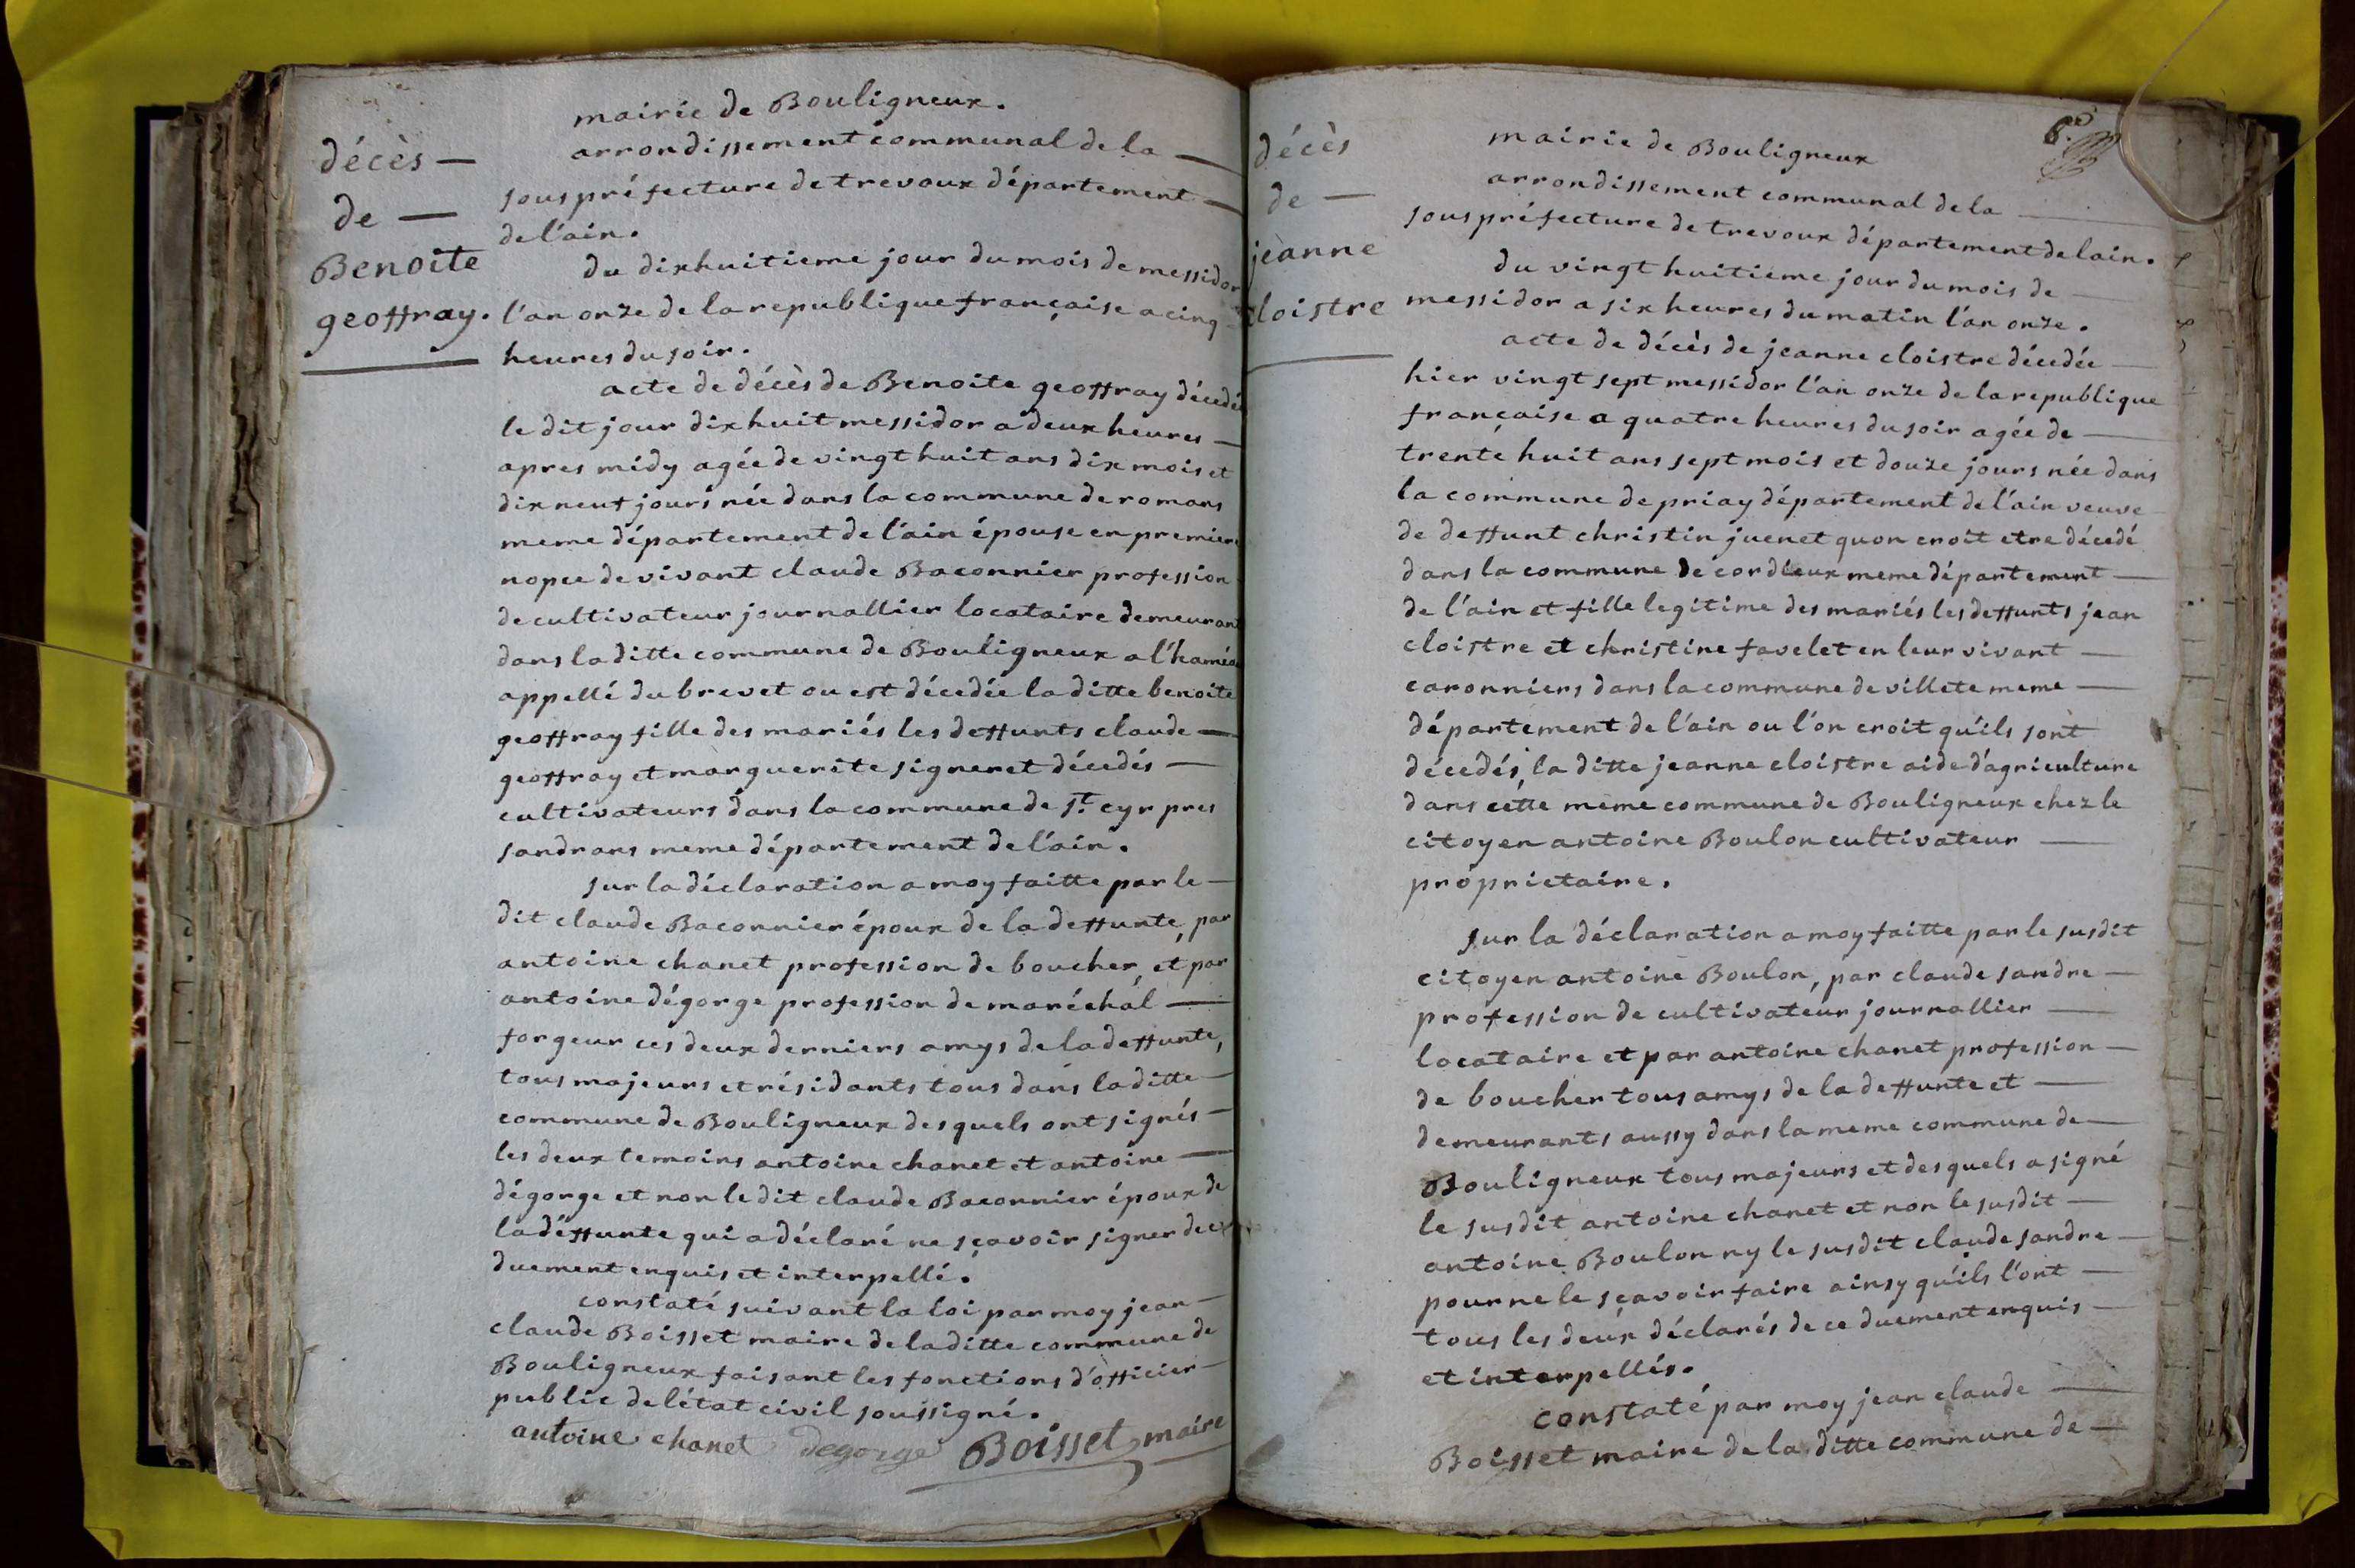 décès —
de —
Benoite
geoffray.
mairie de Bouligneux.
arrondissement communal de la —
sous préfecture de trevoux département —
de l'ain.
du dixhuitieme jour du mois de messidor
l'an onze de la republique française a cinq
heures du soir.
acte de décès de Benoite geoffray décedée
le dit jour dixhuit messidor a deux heures —
apres midy agée de vingt huit ans dix mois et
dix neuf jours née dans la commune de romans
meme département de l'ain épouse en premiere
nopce de vivant claude Baconnier profession
de cultivateur journallier locataire demeurant
dans la ditte commune de Bouligneux a l'haméau
appellé du brevet ou est décedée la ditte benoite
geoffray fille des mariés les deffunts claude —
geoffray et marguerite signeret décedés —
cultivateurs dans la commune de st. cyr pres
sandrans meme département de l'ain.
sur la déclaration a moy faitte par le —
dit claude Baconnier époux de la deffunte, par
antoine chanet profession de boucher, et par
antoine dégorge profession de maréchal —
forgeur ces deux derniers amys de la deffunte,
tous majeurs et résidants tous dans la ditte —
commune de Bouligneux desquels ont signés —
les deux temoins antoine chanet et antoine —
dégorge et non le dit claude Baconnier époux de
la déffunte qui a déclaré ne sçavoir signer de ce
duement enquis et interpellé.
constaté suivant la loi par moy jean —
claude Boisset maire de la ditte commune de
Bouligneux faisant les fonctions d'officier —
public de l'état civil soussigné.
antoine chanet degorge Boisset maire
6.e
décès
de —
jeanne
cloistre
mairie de Bouligneux
arrondissement communal de la —
sous préfecture de trevoux département de lain.
du vingt huitieme jour du mois de —
messidor a six heures du matin l'an onze.
acte de décès de jeanne cloistre décedée —
hier vingt sept messidor l'an onze de la republique
française a quatre heures du soir agée de —
trente huit ans sept mois et douze jours née dans
la commune de priay département de l'ain veuve
de deffunt christin juenet quon croit etre décedé
dans la commune de cordieux meme département —
de l'ain et fille legitime des mariés les deffunts jean
cloistre et christine favelet en leur vivant —
caronniers dans la commune de villete meme —
département de l'ain ou l'on croit qu'ils sont
décedés, la ditte jeanne cloistre aide d'agriculture
dans cette meme commune de Bouligneux chez le
citoyen antoine Boulon cultivateur —
proprietaire.
sur la déclaration a moy faitte par le susdit
citoyen antoine Boulon, par claude sandre —
profession de cultivateur journallier —
locataire et par antoine chanet profession —
de boucher tous amys de la deffunte et —
demeurants aussy dans la meme commune de —
Bouligneux tous majeurs et desquels a signé
le susdit antoine chanet et non le susdit —
antoine Boulon ny le susdit claude sandre —
pour ne le sçavoir faire ainsy qu'ils l'ont —
tous les deux déclarés de ce duement enquis —
et interpellés.
constaté par moy jean claude —
Boisset maire de la ditte commune de —